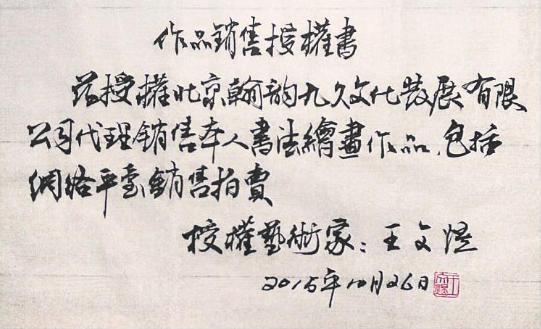 作品销售授權書
兹授權北京翰韵九久文化發展有限
公司代理销售本人書法繪畫作品.包括
網络平臺销售拍賣
授權藝術家：王文
2015年10月26日